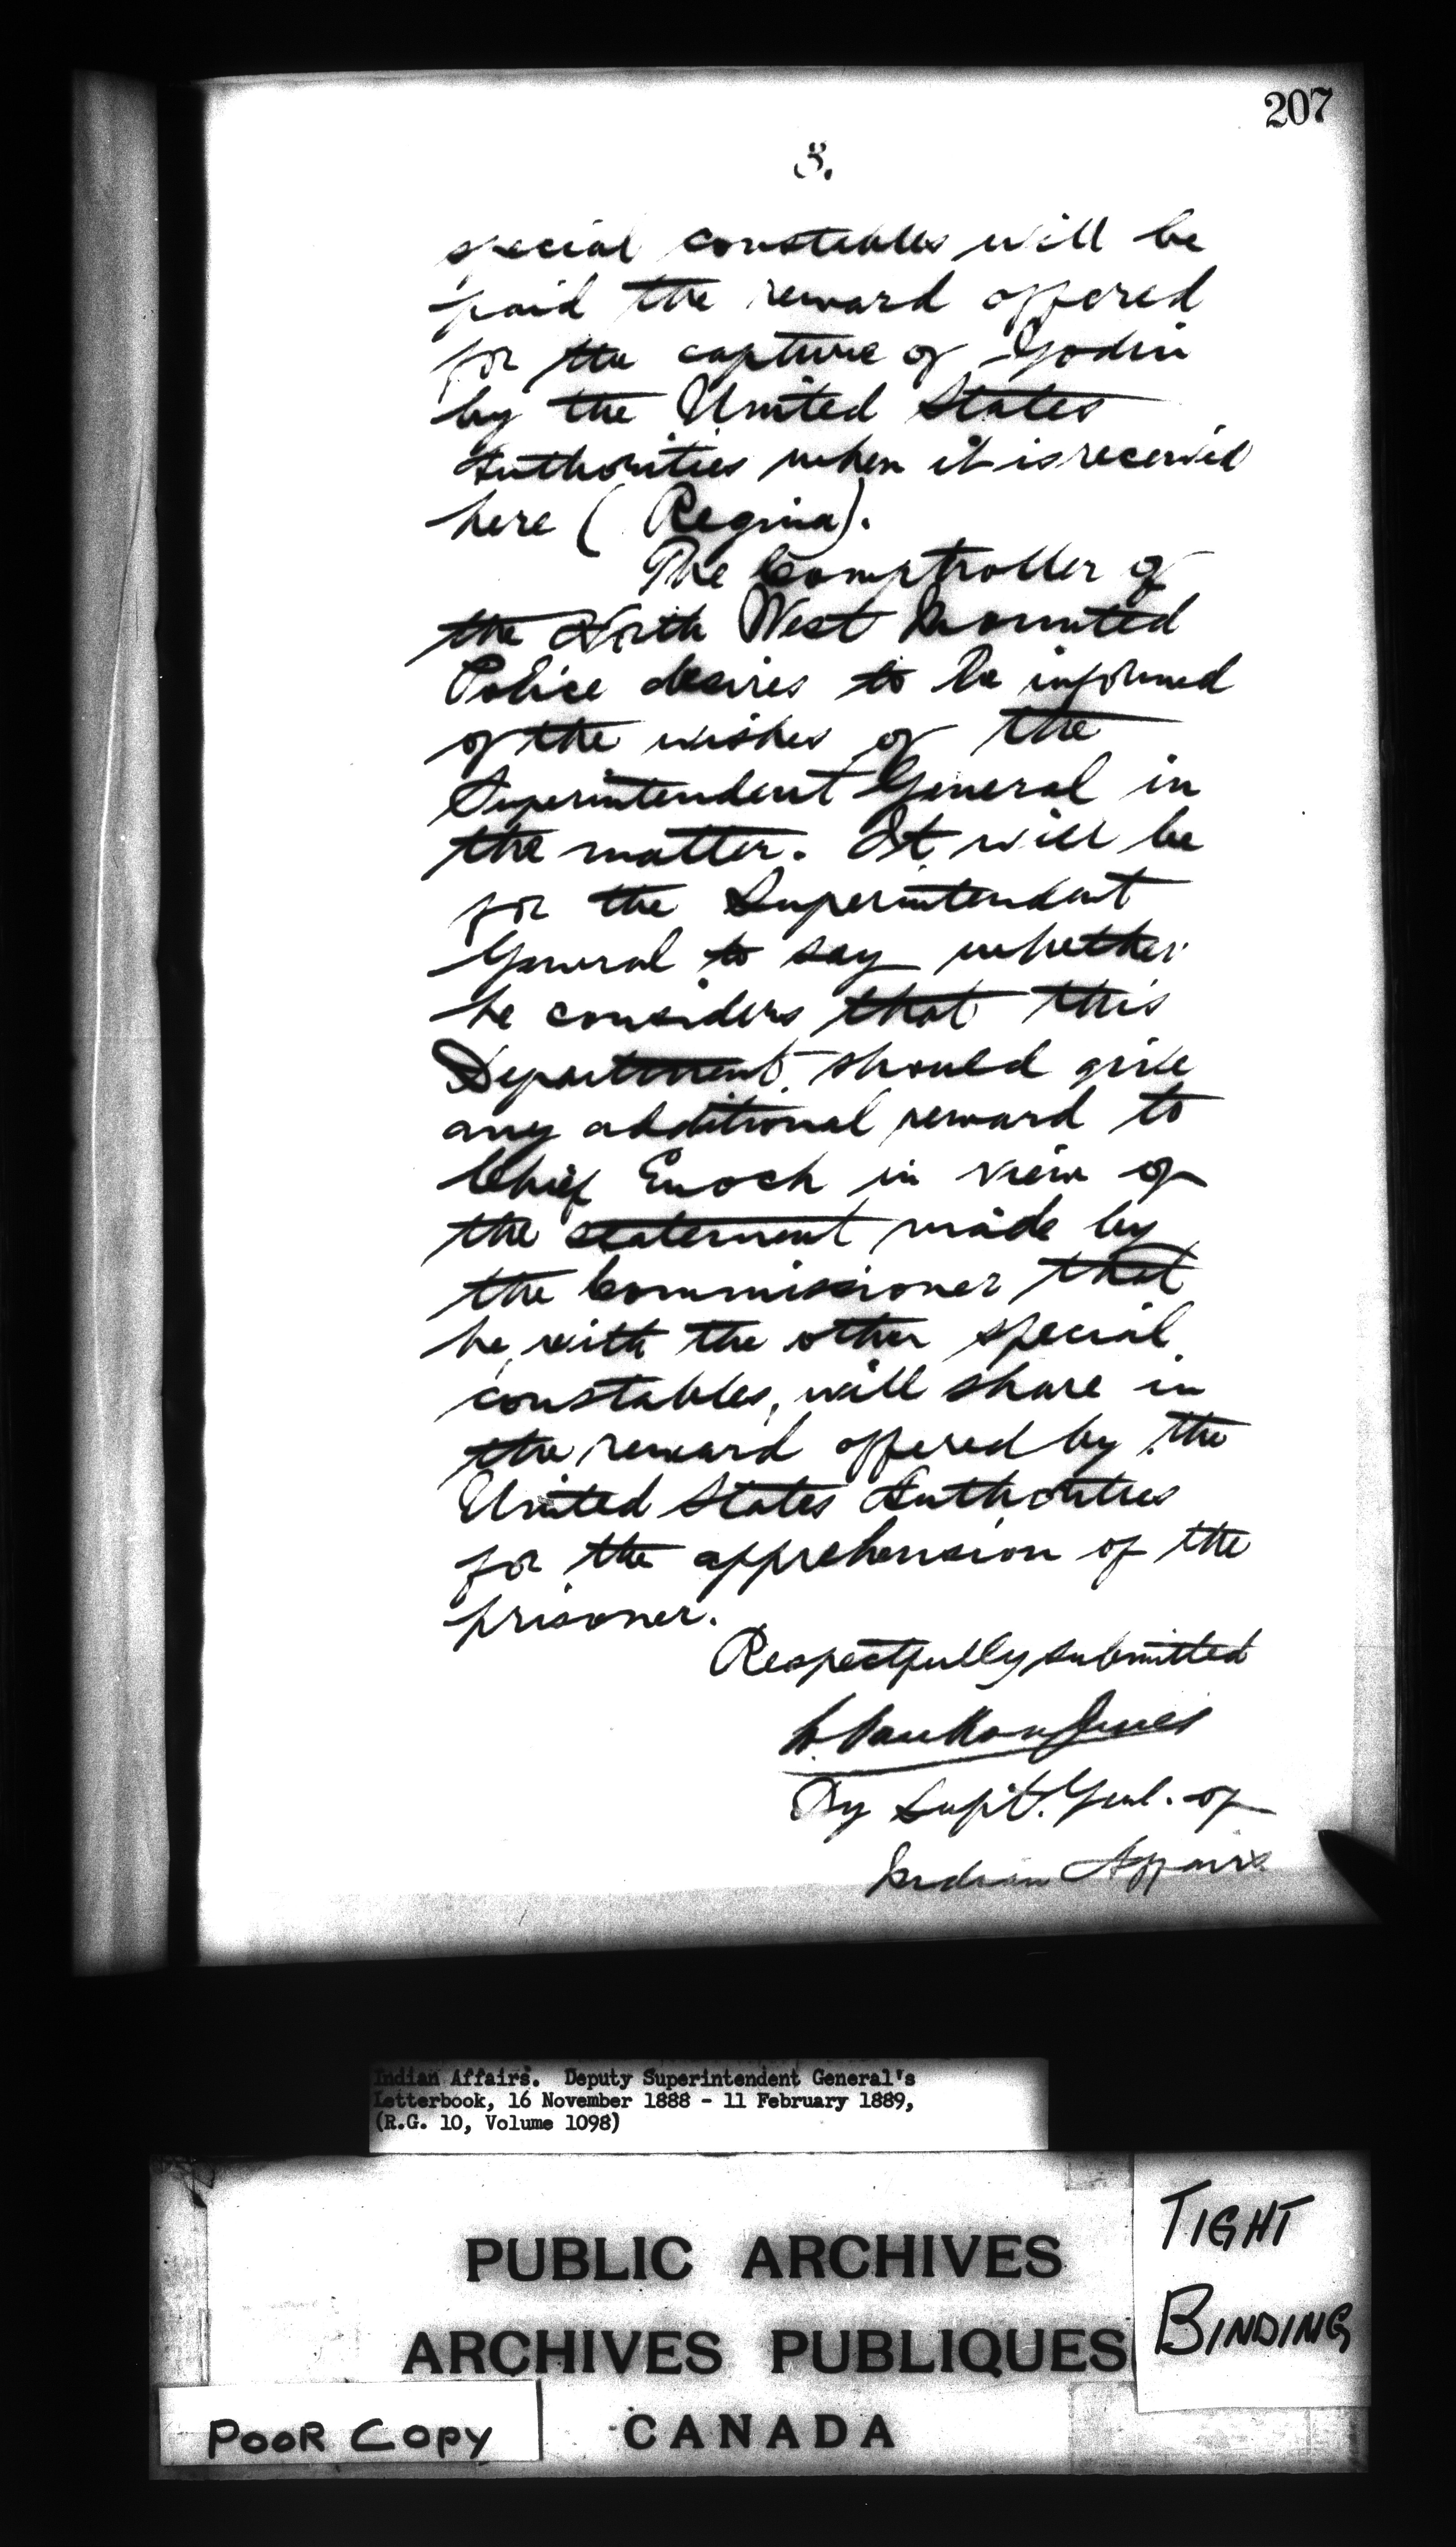 207
3.
special constables will be
paid the reward offered
for the capture of Godin
by the United States
Authorities when it is received
here (Regina).
The Comptroller of
the North West Mounted
Police desires to be informed
of the wishes of the
Superintendent General in
the matter. It will be
for the Superintendent
General to say whether
he considers that this
Department should give
any additional reward to
Chief Enoch in view of
the statement made by
the Commissioner that
he, with the other special
constables, will share in
the reward offered by the
United States Authorities
for the apprehension of the
prisoner.
Respectfully submitted
Dy Supt. Genl. of
Indian Affairs
Indian Affairs. Deputy Superintendent General's
Letterbook, 16 November 1888 - 11 February 1889,
(R.G. 10, Volume 1098)
PUBLIC ARCHIVES
ARCHIVES PUBLIQUES
CANADA
TIGHT
BINDING
POOR COPY